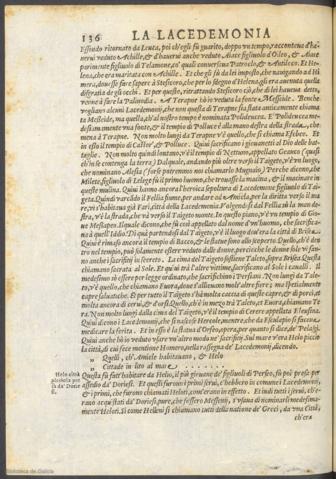 136 LA LACEDEMONIA
Essendo ritornato da Leuca, poi ch'egli fu guarito, doppo un tempo, raccontona d'ha-
ver veduto Achille, & d'haver anche veduto. Aiace figliuolo d'Oileo, & Aiace
parimente figliuolo di Telamone, co' quali conversava Patroclo, & Antiloco. Et He-
lena, che era maritata con Achille.
disgratia de gli occhi. Et per questo, ritrattando Stesicoro ciò, che di lei haveva detto,
venne à fare la Palinodia. A Terapne hò io veduta la fonte Messeide. Benche
vogliano alcuni Lacedemonij, che non questa di Terapne sia stata anticamente chiama
ta Messeide, ma quella, ch'al nostro tempo è nominata Polideucea. E' Polideucea me-
desimamente una fonte, & il tempio di Polluce è alla man destra della strada, che
mena à Terapne. Non molto lungi da Terapne v'è quello, che si chiama Efebeo. Et
in esso il tempio di Castor', & Polluce. Quivi sacrificano i giovanetti al Dio delle bat-
taglie. Non molto quindi lontano, v'è il tempio di Nettuno, appellato Geaoco (quasi
ch'in se contenga la terra.) Dal quale, andando più oltre verso il Taigeto, v'è un luogo,
che nominano Alesia (forse potremmo noi chiamarlo Mugnaio,) Perche dicono, che
Milete figliuolo di Lelege fù il primo huomo, che trovasse la mulina, & il macinare in
queste mulina. Quivi hanno ancora l'heroica sepoltura di Lacedemone figliuolo di Tai-
geta. Quindi varcãdo il Pellia fiume, per andare ad Amicla, per la diritta verso il ma
re, vi s'habitava già Fari, città della Lacedemonia. Volgendo dal Pellia à la man de-
stra, v'è la strada, che và verso il Taigeto monte. In questo piano, v'è un tempio di Gio-
ve Messapeo. Il quale dicono, che fù così appellato dal nome d'un'huomo, che sacrifica-
va à quell'Iddio. Di quà tornando dal Taigeto, v'è il luogo dov'era la città di Brisa.
Quivi è rimaso ancora il tempio di Bacco, & le statue sono allo scoperto. Quello, ch'è den
tro nel tempio, può solamente essere veduto dalle donne, perciò che le donne sole vi fan-
no anche i sacrificij in secreto. La cima del Taigeto sostiene Talcto, sopra Brisea. Questa
chiamano sacrata al Sole. Et quivi trà l'altre vittime, sacrificano al Sole i cavalli. Il
medesimo hò essere per legge ordinato, che sacrifichino i Persiani. Non lungi da Tale-
to, v'è quello, che chiamano Evora, dove s'allievano molt'altre fiere; ma spetialmente
capre salvatiche. Et per tutto il Taigeto s'hà molta caccia di queste capre, & di porci, et
molta ancora di cervi, & d'orsi. Quello, ch'è in mezo trà Taleto, et Evora, chiamano Te
ra. Non molto lungi dalla cima del Taigeto, v'è il tempio di Cerere appellata Eleusina.
Quivi dicono i Lacedemonij, che si nascose Hercole, mentre, che da Esculapio si faceva
medicare la ferita. Et in esso è la statua d'Orfeo, opera, per quanto si dice, de' Pelasgi.
Quivi anche hò io veduto usare un'altro modo ne' sacrificij. Sul mare v'era Helo piccio
la città, di cui fece mentione Homero, nella rassegna de' Lacedemonij, dicendo.
„ Quelli, ch'Amicle habitavano, & Helo
„ Cittade in lito al mar
Helo città picciola posta da' Dorie si.
Questa fù fatt'habitare da Helio, il più giovane de' figliuoli di Perseo, fù poi presa per
assedio da' Doriesi. Et questi furono i primi servi, c'hebbero in comune i Lacedemonij,
& i primi, che furono chiamati Heloti, com'erano in effetto. Et indi tutti i servi, ch'erano
acquistati da' Doriesi, pure, che fossero Messenij, s'usava di nominarsi medesima-
mente Heloti. Si come Helleni si chiamano tutti della natione de' Greci, da una Città,
ch'era
Biblioteca de Galicia